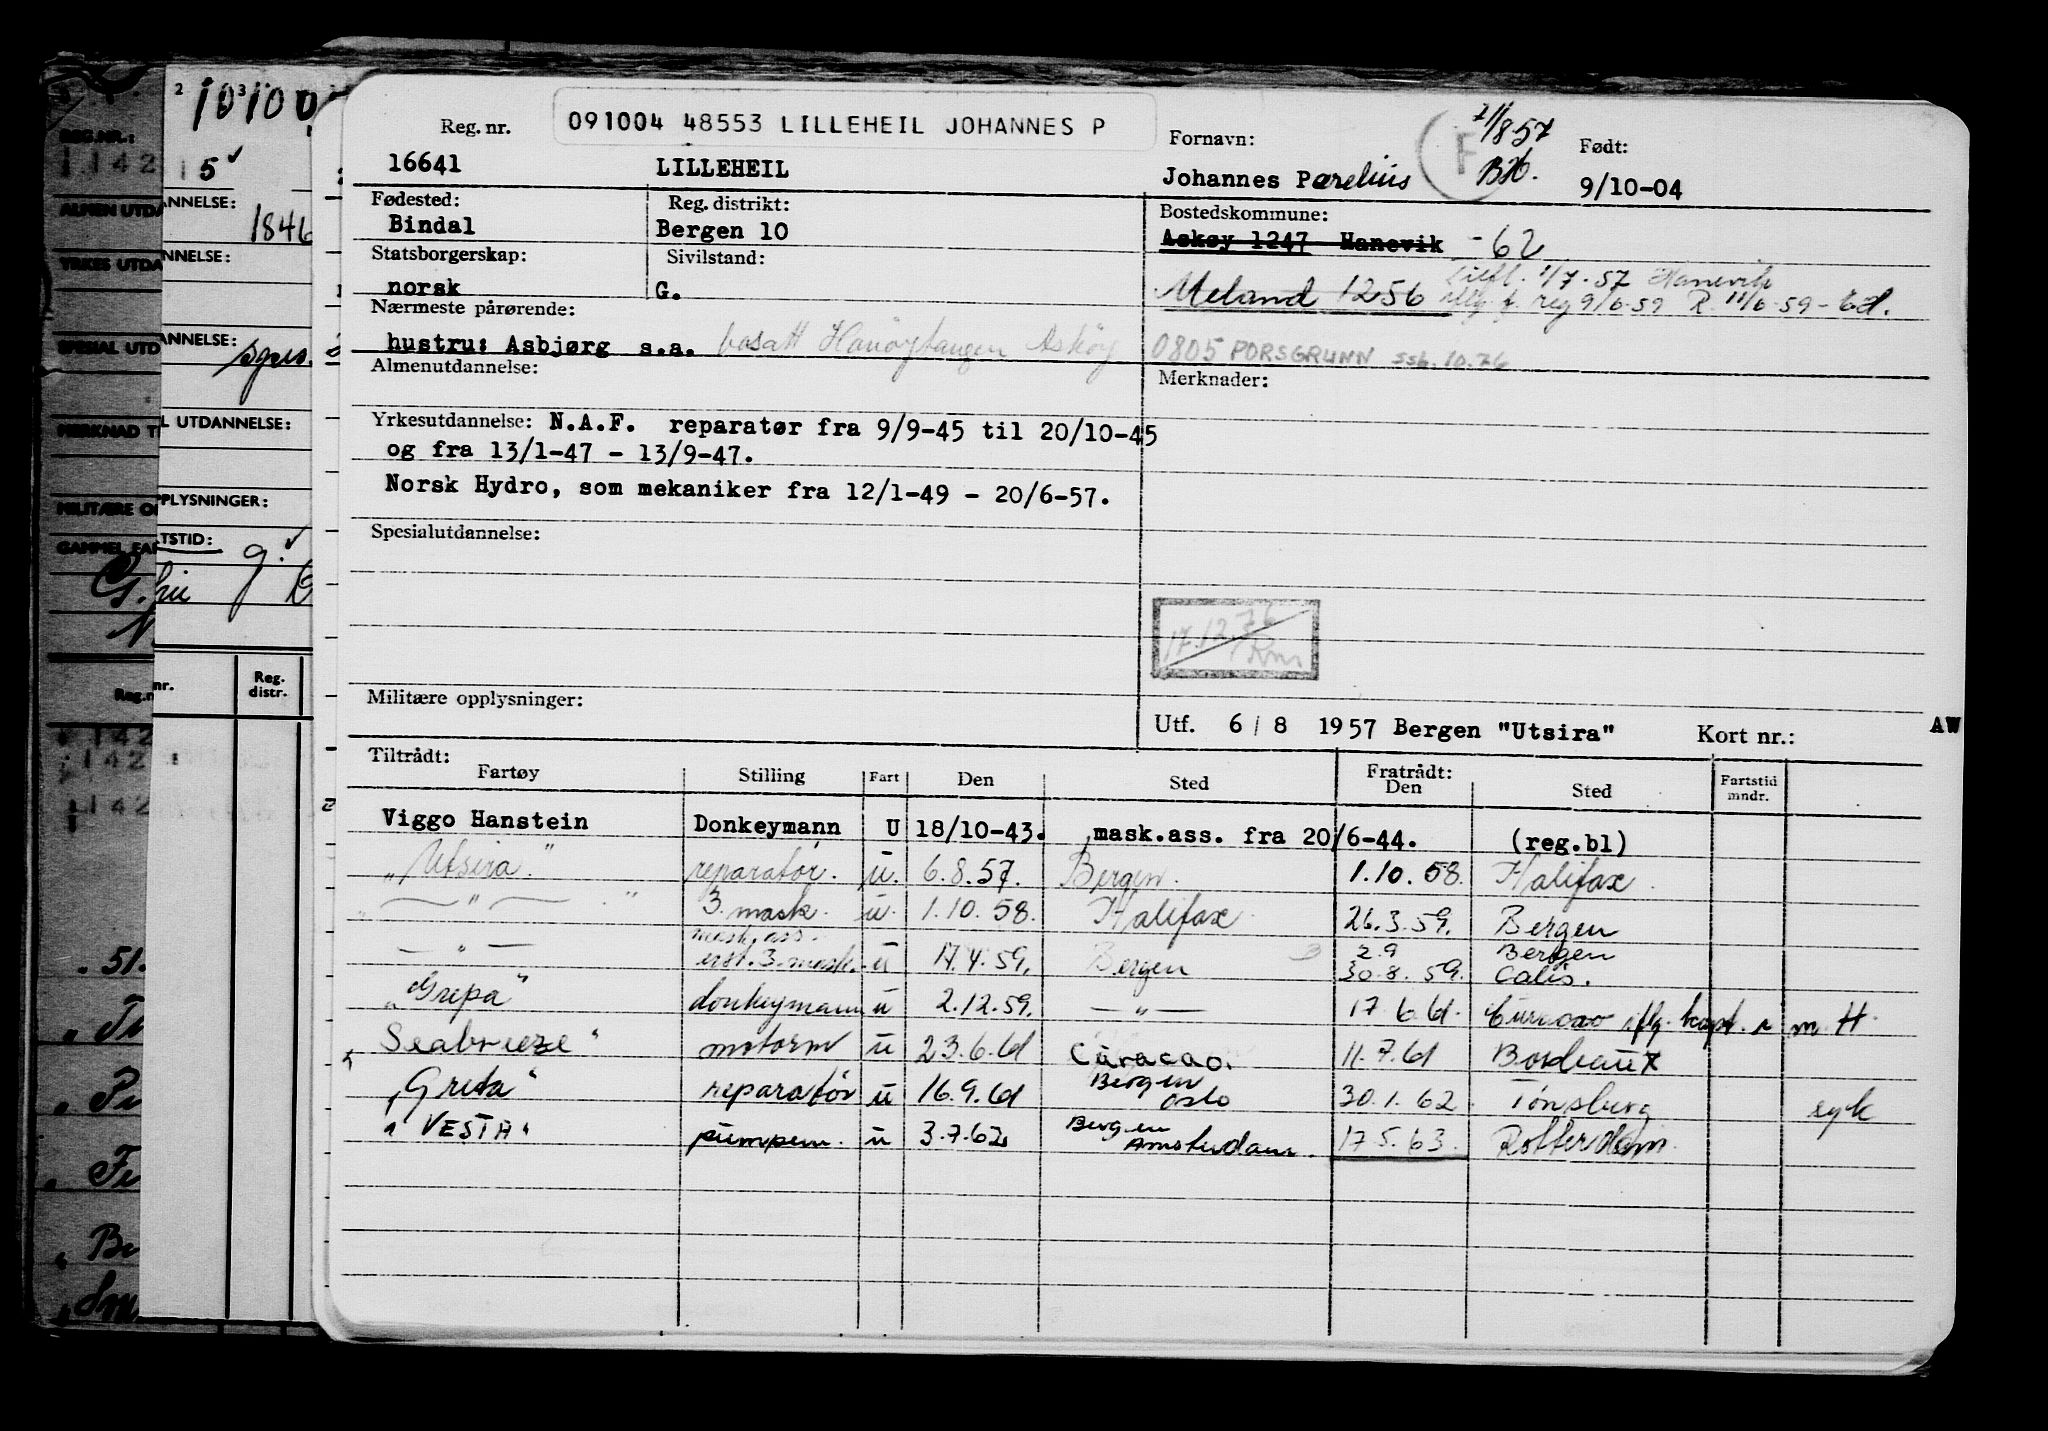 091004 48553 LILLEHEIL JOHANNES P
Reg. nr. Fornavn: 7/8 57 Født:
16641 LILLEHEIL Johannes Parelius F BH. 9/10-04
Fødested: Reg. distrikt: Bostedskommune:
Bindal Bergen 10 Askøy 1247 Hanevik -62
Statsborgerskap: Sivilstand:
norsk G. Meland 1256
1/7-57 Hanevik
reg 9/6-59 R. 11/6-59
Nærmeste pårørende:
hustru: Asbjørg s.a. bosatt Askøy 0805 PORSGRUNN ssb. 10.76
Almenutdannelse: Merknader:
Yrkesutdannelse: N.A.F. reparatør fra 9/9-45 til 20/10-45
og fra 13/1-47 - 13/9-47.
Norsk Hydro, som mekaniker fra 12/1-49 - 20/6-57.
Spesialutdannelse:
17.12.76
Militære opplysninger:
Utf. 6/8 1957 Bergen "Utsira" Kort nr.: AW
Tiltrådt: Fratrådt:
Fartøy Stilling Fart Den Sted Den Sted Fartstid mndr.
Viggo Hanstein Donkeymann U 18/10-43. mask.ass. fra 20/6-44. (reg.bl)
"Utsira" reparatør. u. 6.8.57. Bergen. 1.10.58. Halifax.
" — " — " 3 mask. u. 1.10.58. Halifax 26.3.59. Bergen
mask. ass. 2.9 Bergen
— " — erst. 3. mask. u 17.4.59. Bergen 30.8.59. Calis.
"Grepa" donkeymann u 2.12.59. — " — 17.6.61. Curacao iflg. kapt. m.H.
Seabreeze" motorm u 23.6.61 Curacao. 11.7.61 Bordeaux
"Greta" reparatør u 16.9.61 Bergen Oslo 30.1.62 Tønsberg syk
"VESTA" pumpem. u 3.7.62 Bergen Amsterdam. 17.5.63. Rotterdam.
REG.NR.:
142
2 3
10100
5
ANNELSE:
1846
NNELSE:
ANNELSE:
L UTDANNELSE:
PLYSNINGER:
TSTID:
g.
Reg.
distr.
nr.
142
142
142
51.